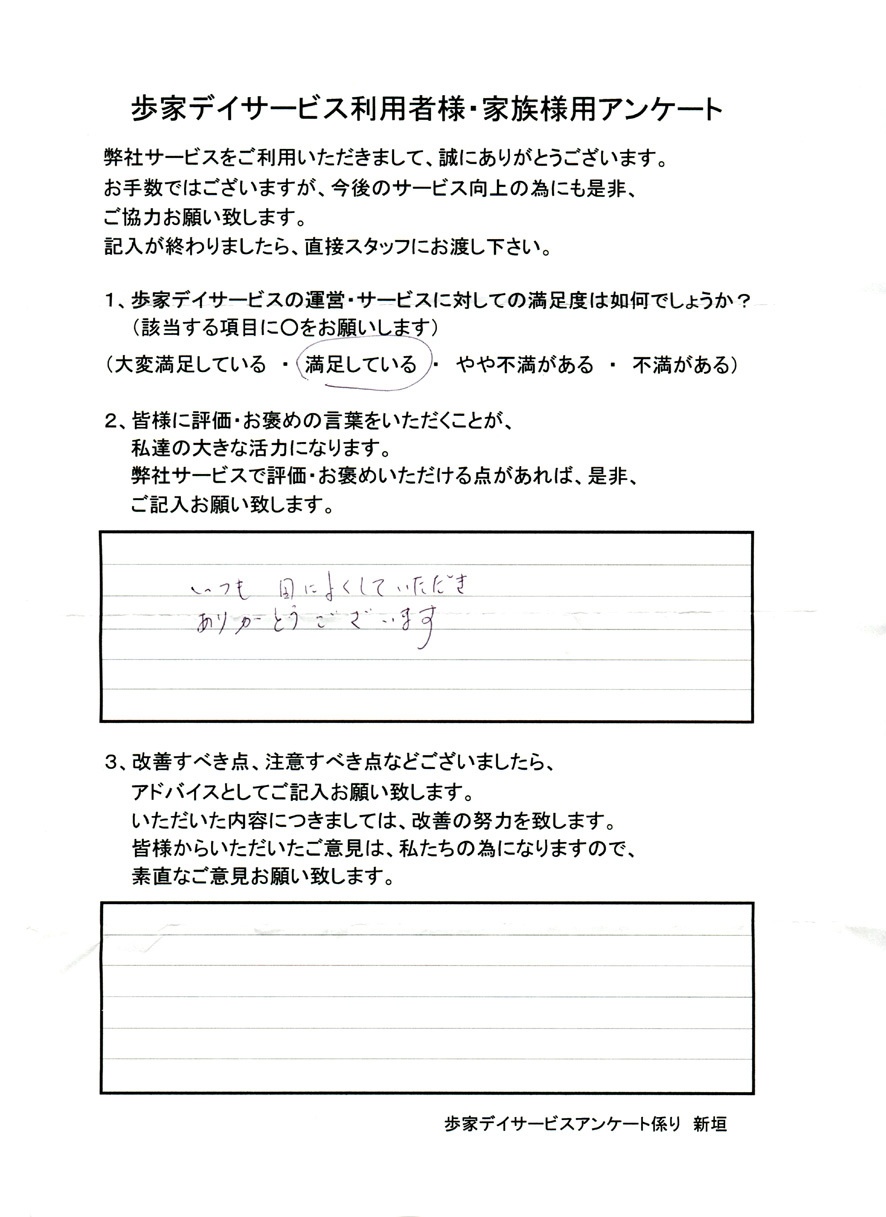 歩家デイサービス利用者様・家族様用アンケート
弊社サービスをご利用いただきまして、誠にありがとうございます。
お手数ではございますが、今後のサービス向上の為にも是非、
ご協力お願い致します。
記入が終わりましたら、直接スタッフにお渡し下さい。
1、歩家デイサービスの運営・サービスに対しての満足度は如何でしょうか?
(該当する項目に〇をお願いします)
(大変満足している ・ 満足している ・ やや不満がある ・ 不満がある)
2、皆様に評価・お褒めの言葉をいただくことが、
私達の大きな活力になります。
弊社サービスで評価・お褒めいただける点があれば、是非、
ご記入お願い致します。
いつも によくしていただき
ありがとうございます
3、改善すべき点、注意すべき点などございましたら、
アドバイスとしてご記入お願い致します。
いただいた内容につきましては、改善の努力を致します。
皆様からいただいたご意見は、私たちの為になりますので、
素直なご意見お願い致します。
歩家デイサービスアンケート係り 新垣